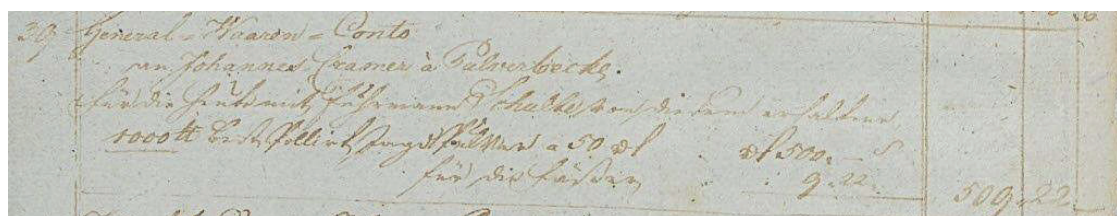 39 General-Waaren-Conto
an Johannes Cramer à Pulverbecke.
für die heute mit Fuhrmann Schulte, von diesem erhaltene
1000 ℔ best pollirt Jagd Pulver a 50 rℓ rℓ 500.-
für die Fässer 9.22. 509.22